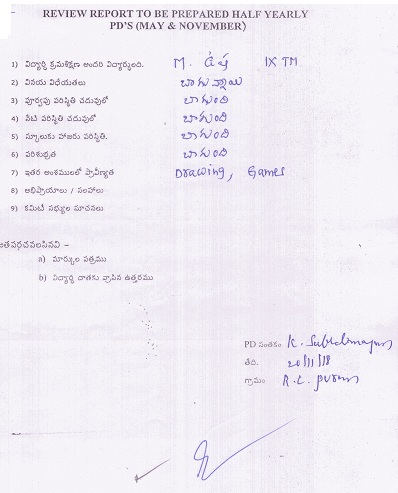 REVIEW REPORT TO BE PREPARED HALF YEARLY
PD'S (MAY & NOVEMBER)
1) విద్యార్థి క్రమశిక్షణ అందరి విద్యార్థులది. M. IX TM
2) వినయ విధేయతలు బాగున్నాయి
3) పూర్వపు పరిస్థితి చదువులో బాగుంది
4) నేటి పరిస్థితి చదువులో బాగుంది
5) స్కూలుకు హాజరు పరిస్థితి. బాగుంది
6) పరిశుభ్రత బాగుంది
7) ఇతర అంశములలో ప్రావీణ్యత Drawing, Games
8) అభిప్రాయాలు / సలహాలు
9) కమిటీ సభ్యుల సూచనలు
జతపరచవలసినవి –
a) మార్కుల పత్రము
b) విద్యార్థి దాతకు వ్రాసిన ఉత్తరము
PD సంతకం K.
తేది. 20/11/18
గ్రామం R.C. puram